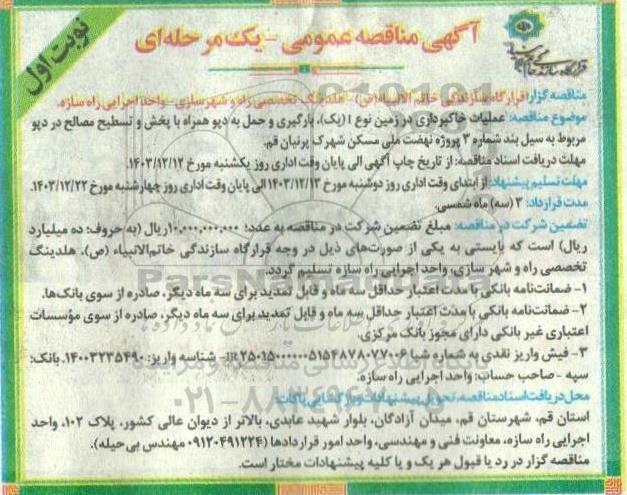 نوبت اول
آگهی مناقصه عمومی - یک مرحله‌ای
قرارگاه سازندگی خاتم الانبیاء
مناقصه گزار: قرارگاه سازندگی خاتم الانبیاء(ص) - هلدینگ تخصصی راه و شهرسازی - واحد اجرایی راه سازه.
موضوع مناقصه: عملیات خاکبرداری در زمین نوع I (یک)، بارگیری و حمل به دپو همراه با پخش و تسطیح مصالح در دپو
مربوط به سیل بند شماره ۳ پروژه نهضت ملی مسکن شهرک پرنیان قم.
مهلت دریافت اسناد مناقصه: از تاریخ چاپ آگهی الی پایان وقت اداری روز یکشنبه مورخ ۱۴۰۳/۱۲/۱۲.
مهلت تسلیم پیشنهاد: از ابتدای وقت اداری روز دوشنبه مورخ ۱۴۰۳/۱۲/۱۳ الی پایان وقت اداری روز چهارشنبه مورخ ۱۴۰۳/۱۲/۲۲.
مدت قرارداد: ۳ (سه) ماه شمسی.
تضمین شرکت در مناقصه: مبلغ تضمین شرکت در مناقصه به عدد: ۱۰,۰۰۰,۰۰۰,۰۰۰ ریال (به حروف: ده میلیارد
ریال) است که بایستی به یکی از صورت‌های ذیل در وجه قرارگاه سازندگی خاتم‌الانبیاء (ص)، هلدینگ
تخصصی راه و شهر سازی، واحد اجرایی راه سازه تسلیم گردد.
۱- ضمانت‌نامه بانکی با مدت اعتبار حداقل سه ماه و قابل تمدید برای سه ماه دیگر، صادره از سوی بانک‌ها.
۲- ضمانت‌نامه بانکی با مدت اعتبار حداقل سه ماه و قابل تمدید برای سه ماه دیگر، صادره از سوی مؤسسات
اعتباری غیر بانکی دارای مجوز بانک مرکزی.
۳- فیش واریز نقدی به شماره شبا IR۲۵۰۱۵۰۰۰۰۰۰۵۱۵۴۸۷۸۰۷۷۰۰۶- شناسه واریز: ۱۴۰۰۳۲۳۵۴۹۰. بانک:
سپه - صاحب حساب: واحد اجرایی راه سازه.
محل دریافت اسناد مناقصه، تحویل پیشنهادات و بازگشایی پاکات:
استان قم، شهرستان قم، میدان آزادگان، بلوار شهید عابدی، بالاتر از دیوان عالی کشور، پلاک ۱۰۲، واحد
اجرایی راه سازه، معاونت فنی و مهندسی، واحد امور قراردادها (۰۹۱۲۰۴۹۱۲۲۴ مهندس بی‌حیله).
مناقصه گزار در رد یا قبول هر یک و یا کلیه پیشنهادات مختار است.